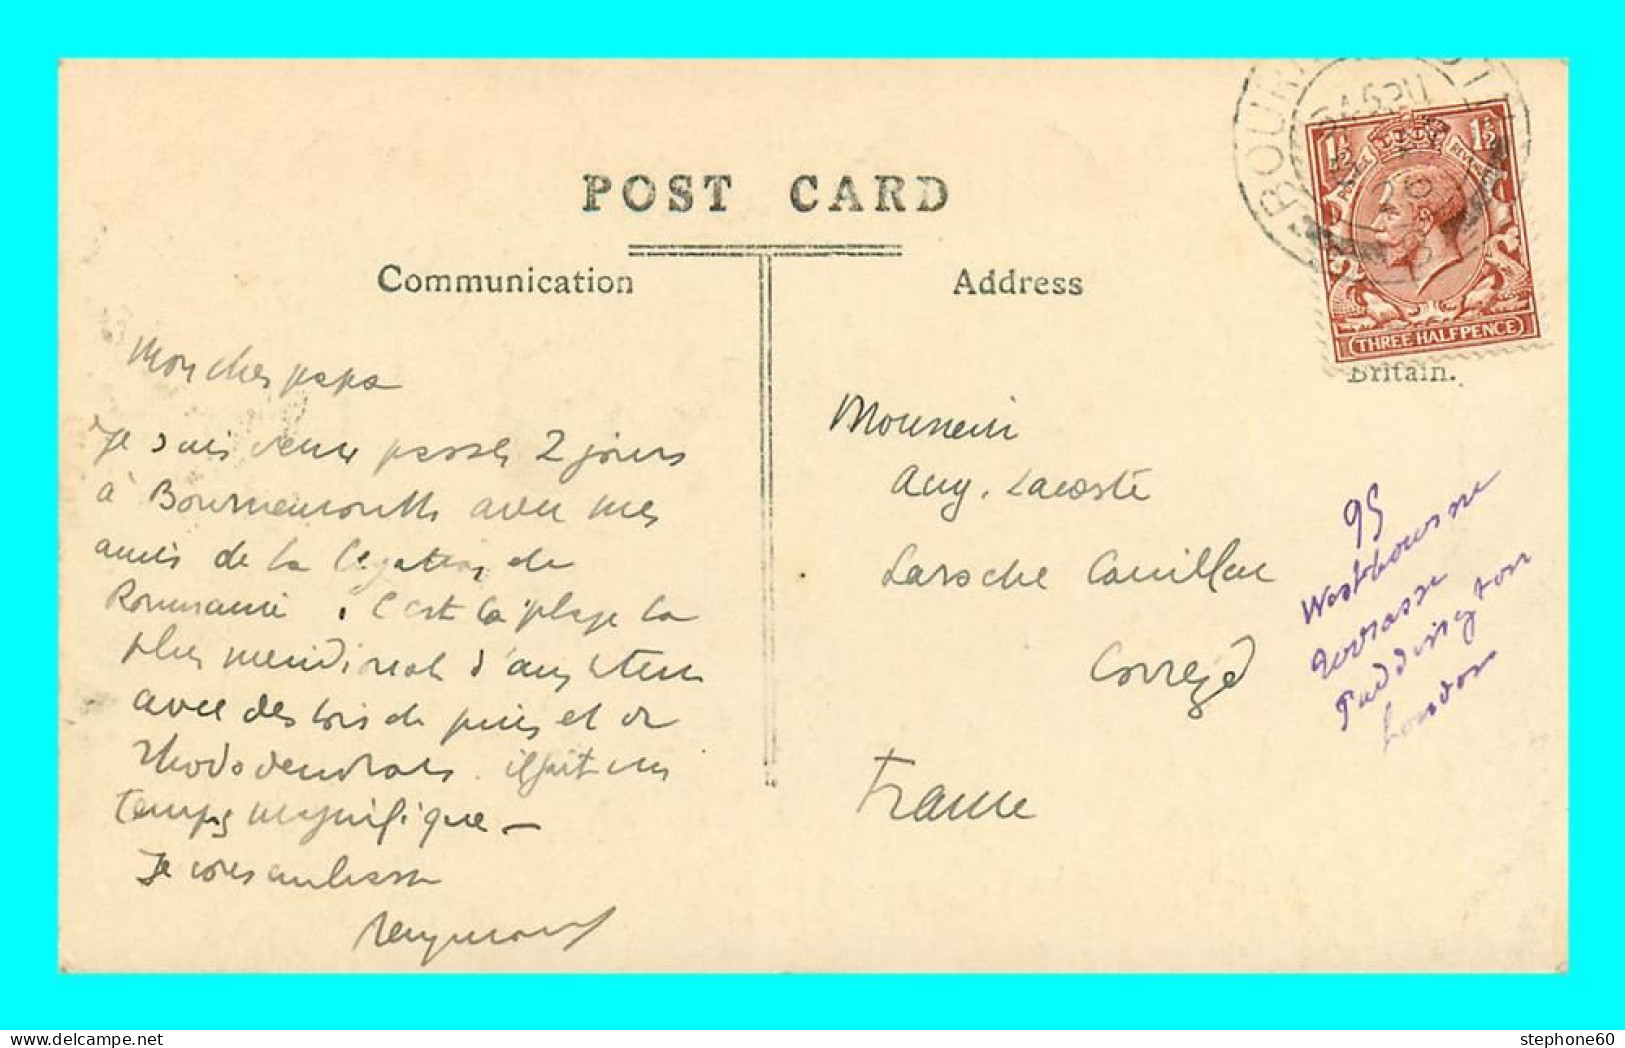 POST CARD
Communication
Address
BOURN
1½ 1½
THREE HALFPENCE
Britain.
Mon cher papa
Je suis venu passer 2 jours
à Bournemouth avec mes
amis de la légation de
Roumanie. C'est la plage la
plus méridional d'angleterre
avec des bois de pins et de
rhododendrons. il fait un
temps magnifique —
Je vous embrasse
Raymond
Monsieur
Aug. Lacoste
Laroche Canillac
Corrèze
France
95
Westbourne
Paddington
London
stephone60